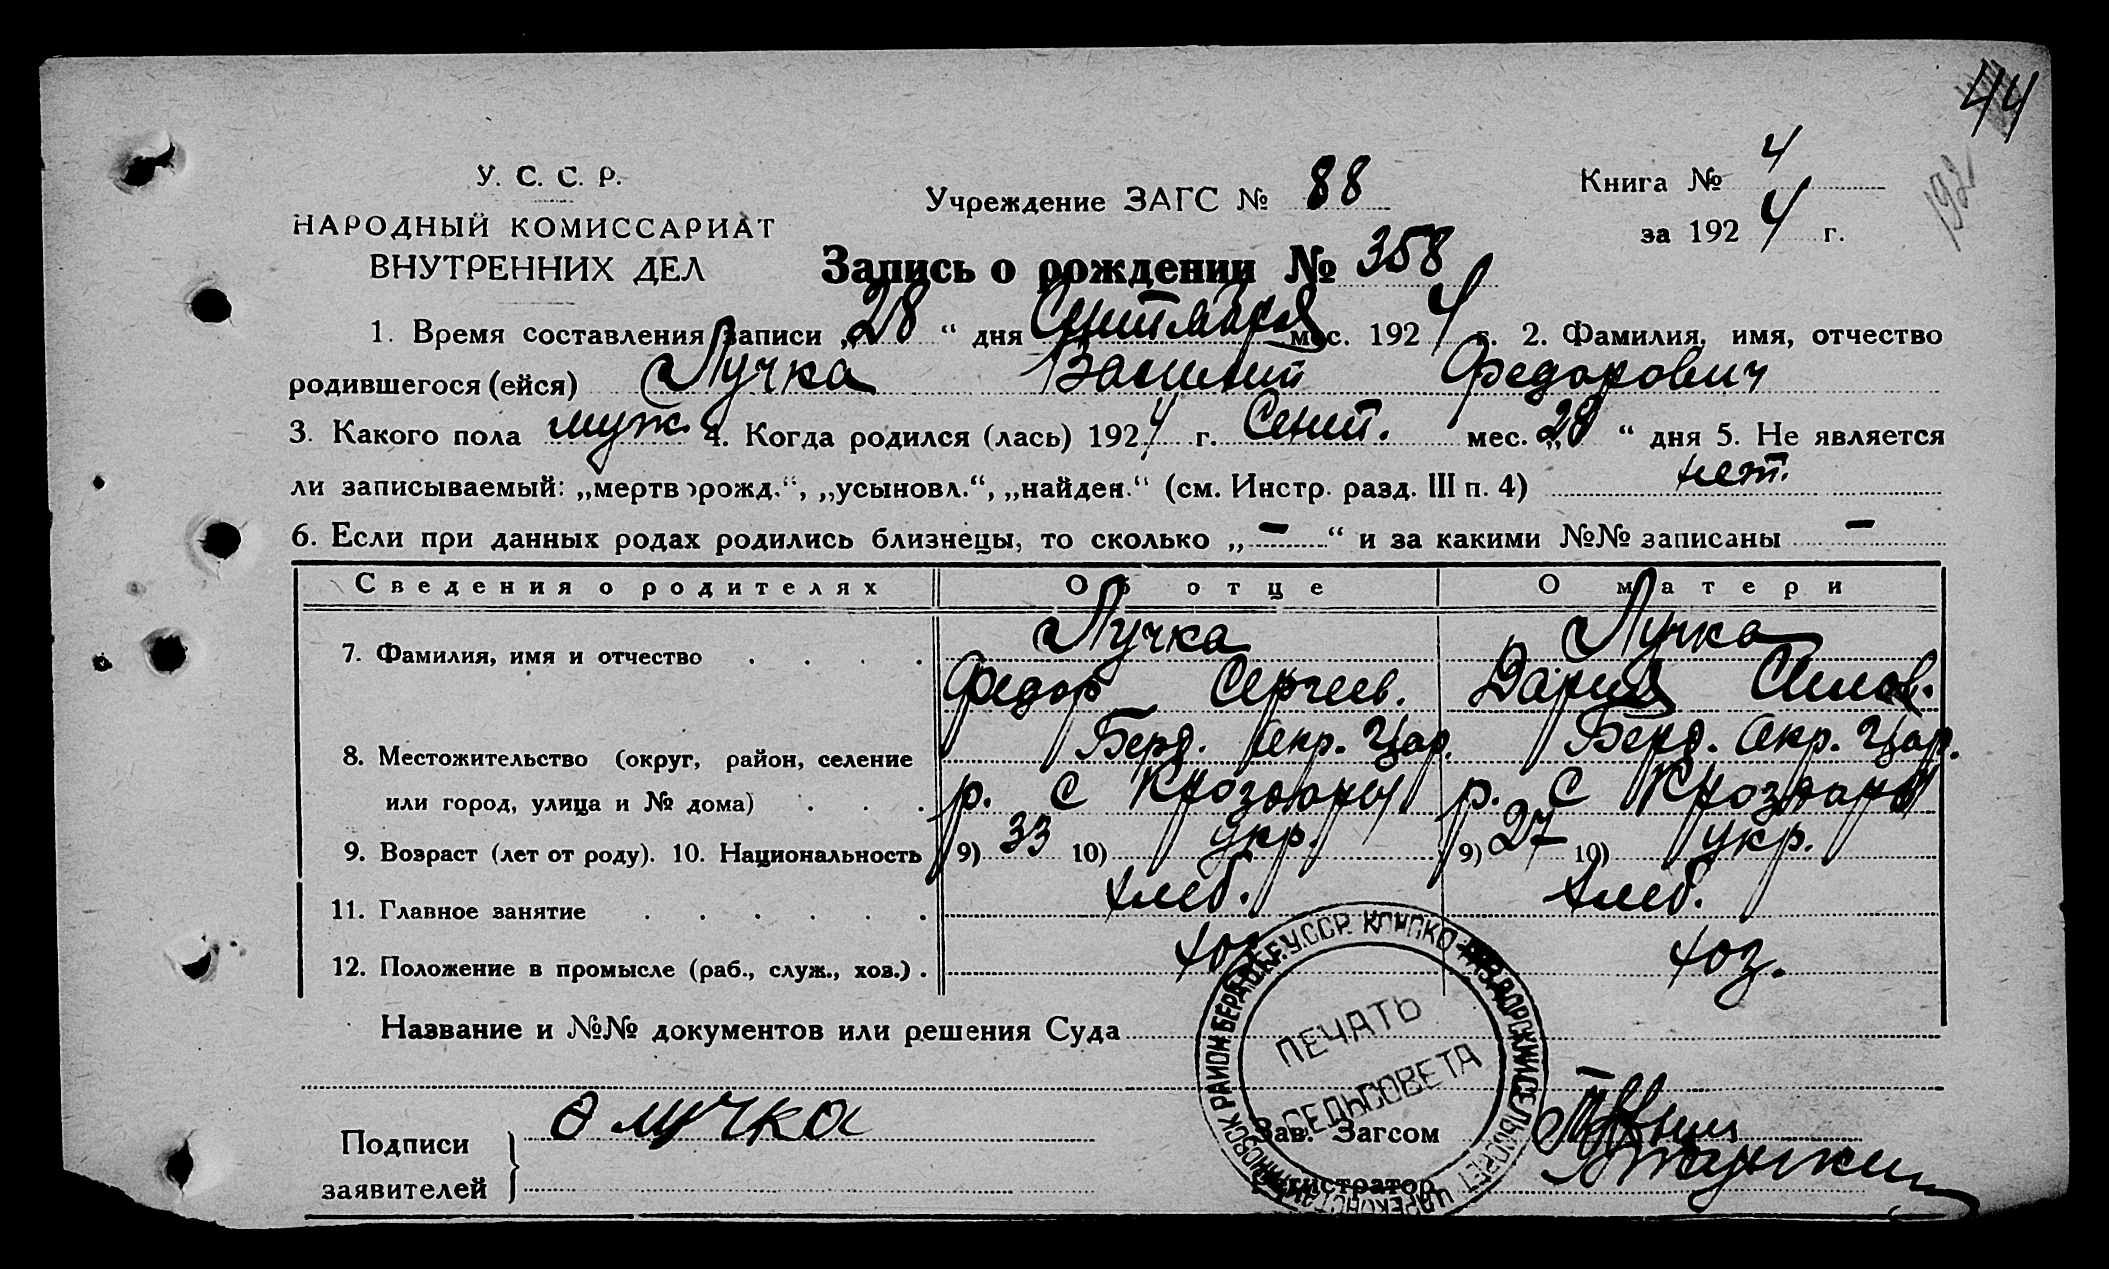 44
192
У. С. С. Р.
НАРОДНЫЙ КОМИССАРИАТ
ВНУТРЕННИХ ДЕЛ
Учреждение ЗАГС № 88
Книга № 4
за 1924 г.
Запись о рождении № 358
1. Время составления записи „28“ дня Сентября мес. 1924 г. 2. Фамилия, имя, отчество
родившегося (ейся) Лучка Василий Федорович
3. Какого пола муж. 4. Когда родился (лась) 1924 г. Сент. мес. „20“ дня 5. Не является
ли записываемый: „мертворожд.“, „усыновл.“, „найден.“ (см. Инстр. разд. III п. 4) нет.
6. Если при данных родах родились близнецы, то сколько „–“ и за какими №№ записаны –
Сведения о родителях Об отце О матери
7. Фамилия, имя и отчество Лучка Лучка
Федор Сергеев. Дария Симов.
8. Местожительство (округ, район, селение Берд. Окр. Цар. Берд. Окр. Цар.
или город, улица и № дома) р. с р. с
9. Возраст (лет от роду). 10. Национальность 9) 33 10) укр. 9) 27 10) укр.
11. Главное занятие хлеб. хлеб.
12. Положение в промысле (раб., служ., хоз.) хоз. хоз.
Название и №№ документов или решения Суда
Подписи
заявителей
Лучка
Зав. Загсом
Регистратор
ПЕЧАТЬ
СЕЛЬСОВЕТА
У.ССР. КОНСКО-РАЗДОРСКИЙ СЕЛЬСОВЕТ ЦАРЕКОНСТАНТИНОВСК РАЙОН. БЕРД.ОКР.